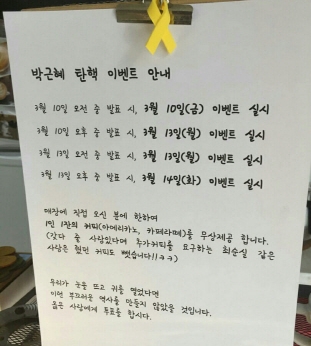 박근혜 탄핵 이벤트 안내
3월 10일 오전 중 발표 시, 3월 10일(금) 이벤트 실시
3월 10일 오후 중 발표 시, 3월 13일(월) 이벤트 실시
3월 13일 오전 중 발표 시, 3월 13일(월) 이벤트 실시
3월 13일 오후 중 발표 시, 3월 14일(화) 이벤트 실시
매장에 직접 오신 분에 한하여
1인 1잔의 커피(아메리카노, 카페라떼)를 무상제공 합니다.
(갖다 줄 사람있다며 추가커피를 요구하는 최순실 같은
사람은 줬던 커피도 뺏습니다!!ㅋㅋ)
우리가 눈을 뜨고 귀를 열었다면
이런 부끄러운 역사를 만들지 않았을 것입니다.
옳은 사람에게 투표를 합시다.